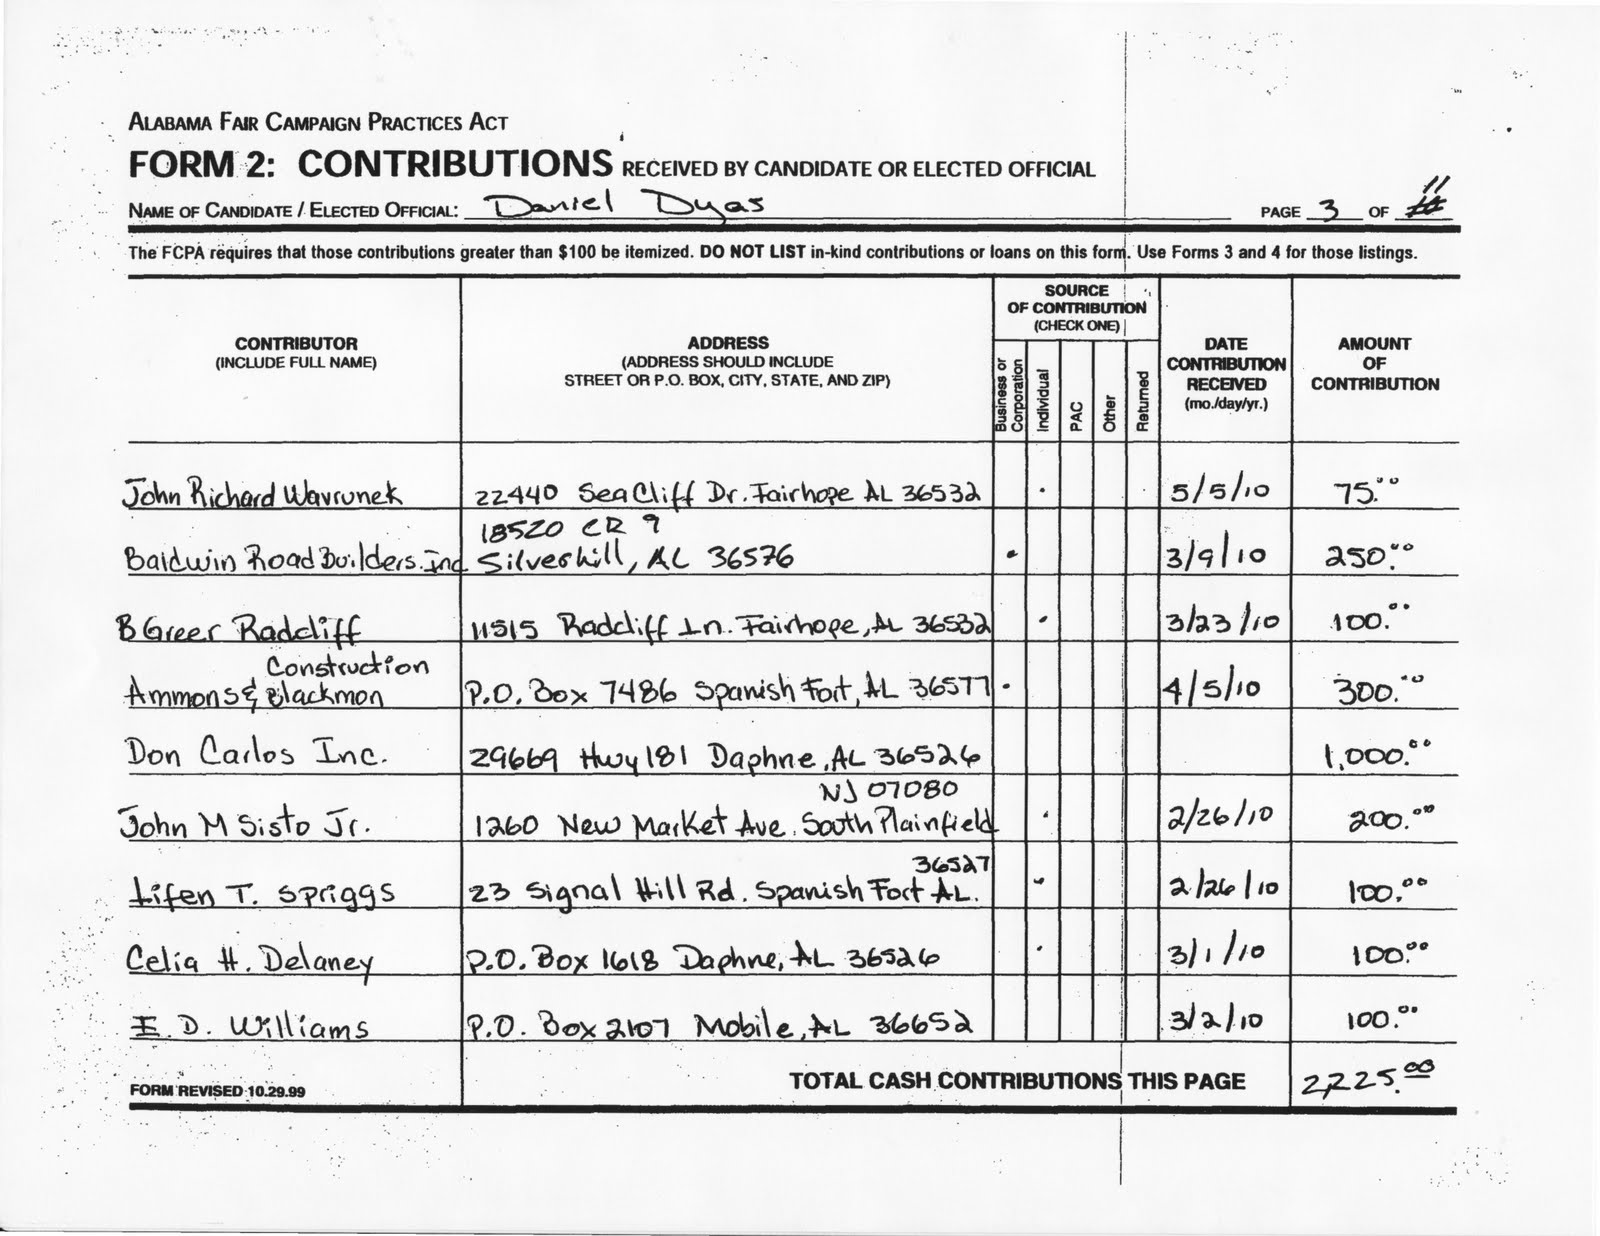 ALABAMA FAIR CAMPAIGN PRACTICES ACT
FORM 2: CONTRIBUTIONS RECEIVED BY CANDIDATE OR ELECTED OFFICIAL
NAME OF CANDIDATE / ELECTED OFFICIAL: Daniel Dyas PAGE 3 OF 11
The FCPA requires that those contributions greater than $100 be itemized. DO NOT LIST in-kind contributions or loans on this form. Use Forms 3 and 4 for those listings.
CONTRIBUTOR
(INCLUDE FULL NAME)
ADDRESS
(ADDRESS SHOULD INCLUDE
STREET OR P.O. BOX, CITY, STATE, AND ZIP)
SOURCE
OF CONTRIBUTION
(CHECK ONE)
Business or
Corporation
Individual
PAC
Other
Returned
DATE
CONTRIBUTION
RECEIVED
(mo./day/yr.)
AMOUNT
OF
CONTRIBUTION
John Richard Wavrunek 22440 Sea Cliff Dr. Fairhope AL 36532 5/5/10 75.00
18520 CR 9
Baldwin Road Builders. Inc Silverhill, AL 36576 3/9/10 250.00
B Greer Radcliff 11515 Radcliff Ln. Fairhope, AL 36532 3/23/10 100.00
Construction
Ammons & Blackmon P.O. Box 7486 Spanish Fort, AL 36577 4/5/10 300.00
Don Carlos Inc. 29669 Hwy 181 Daphne, AL 36526 1,000.00
NJ 07080
John M Sisto Jr. 1260 New Market Ave. South Plainfield 2/26/10 200.00
36527
Lifen T. Spriggs 23 Signal Hill Rd. Spanish Fort AL. 2/26/10 100.00
Celia H. Delaney P.O. Box 1618 Daphne, AL 36526 3/1/10 100.00
E. D. Williams P.O. Box 2107 Mobile, AL 36652 3/2/10 100.00
FORM REVISED 10.29.99 TOTAL CASH CONTRIBUTIONS THIS PAGE 2,225.00